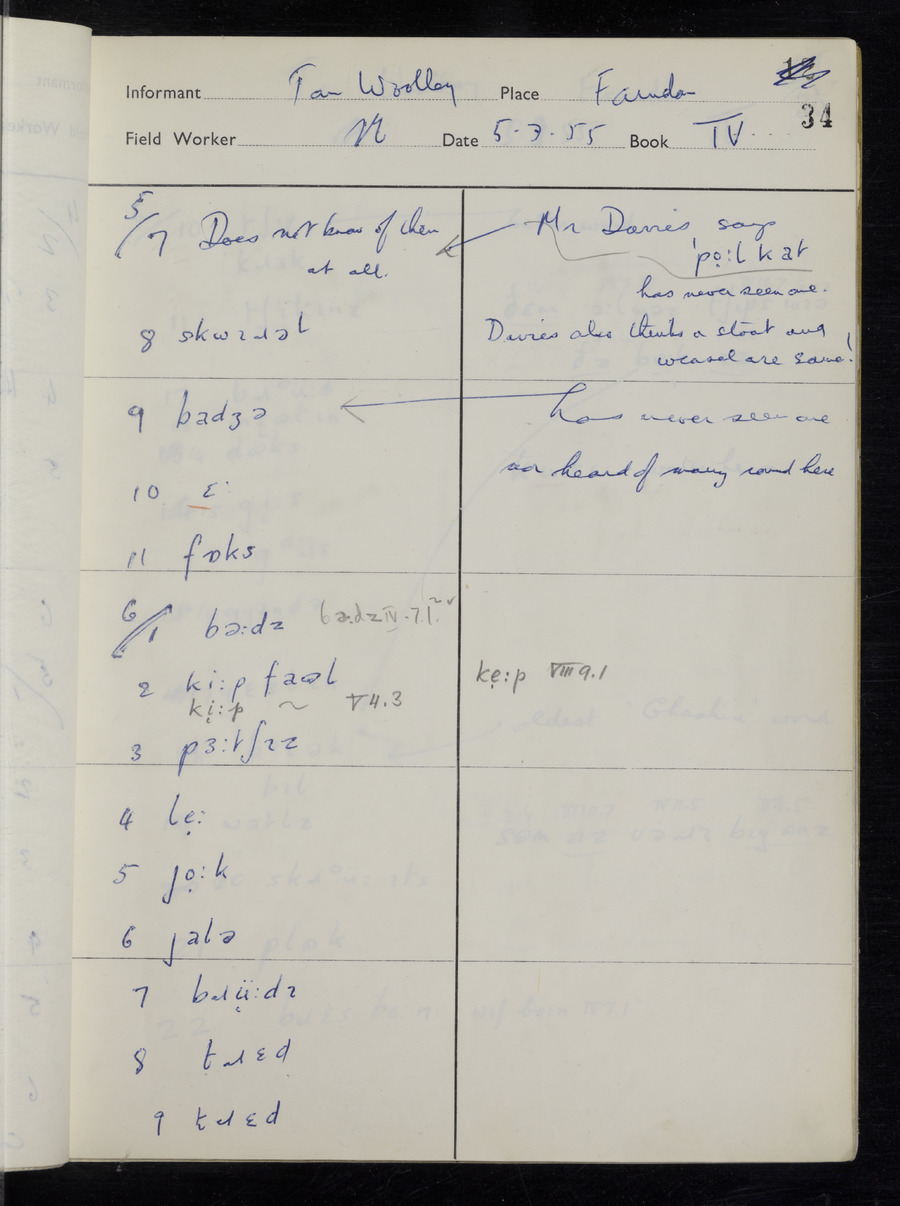 Informant Tom Woolley Place Farndon
34
Field Worker Date 5.3.55 Book IV
5/7 Does not know of them
at all.
Mr Davies says
ˈpọ:lkat
has never seen one.
8 skwɪɹəl
Davies also thinks a stoat and
weasel are same!
9 badʒə
has never seen one
nor heard of many round here
10 ɛ·
11 fɒks
6/1 bə:dz bə:dz IV.7.1
2 ki:p faʊl
kẹ:p VIII 9.1
kị:p ~ V 4.3
3 pɜ:tʃɪz
4 lẹ:
5 jọ:k
6 jalə
7 bɹü:dz
8 tɹɛd
9 tɹɛd